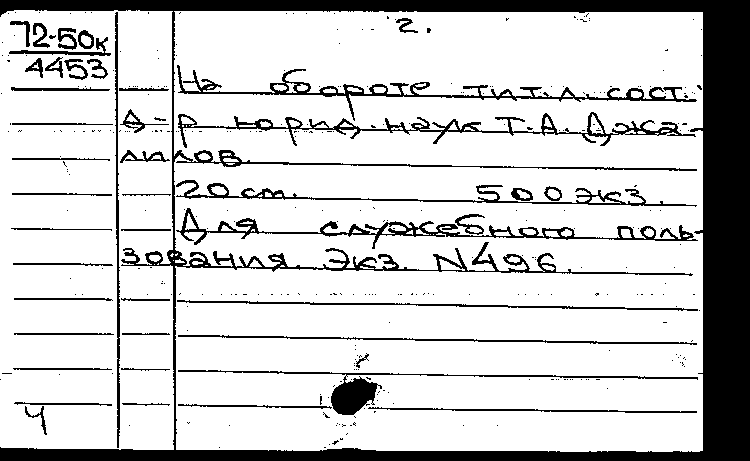 2.
72-50к
4453
На обороте тит.л. сост.:
д-р юрид. наук Т.А. Джа-
лилов.
20 см. 500 экз.
Для служебного поль-
зования. Экз. N496.
Ч